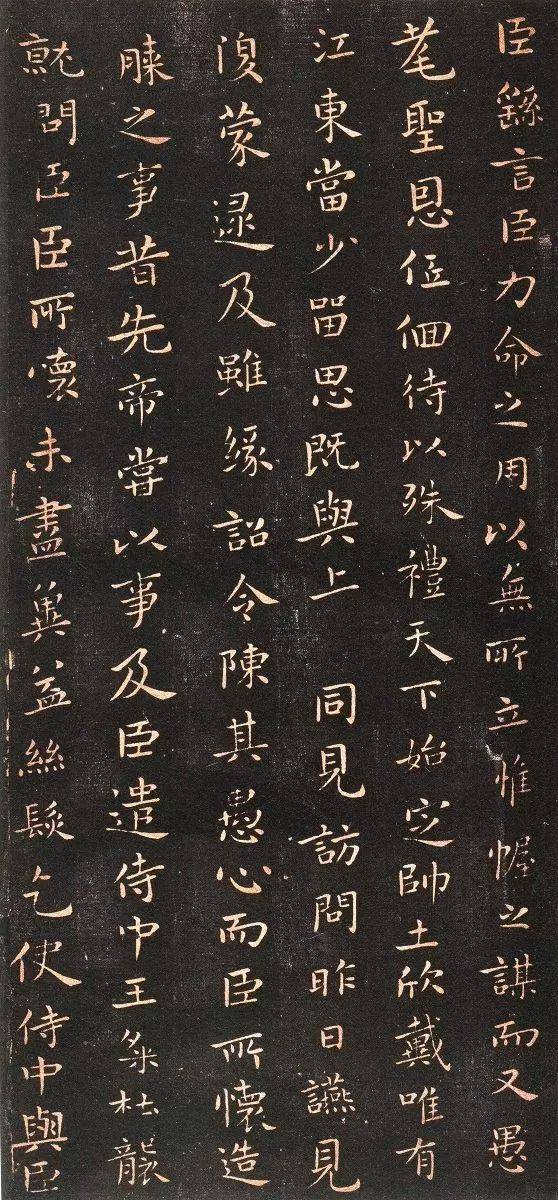 臣繇言臣力命之用以無所立惟幄之謀而又愚
耄聖恩低佪待以殊禮天下始定帥土欣戴唯有
江東當少留思既與上 同見訪問昨日讌見
復蒙逮及雖緣詔令陳其愚心而臣所懷造
膝之事昔先帝嘗以事及臣遣侍中王粲杜襲
就問臣臣所懷未盡冀益絲髮乞使侍中與臣